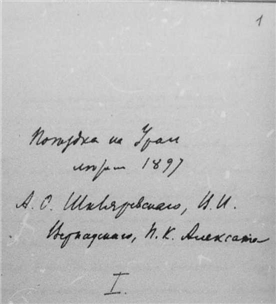 1
Поездка на Урал
1897
А. О. Шкляревского, В. И.
Вернадского, П. К. Алексата
I.